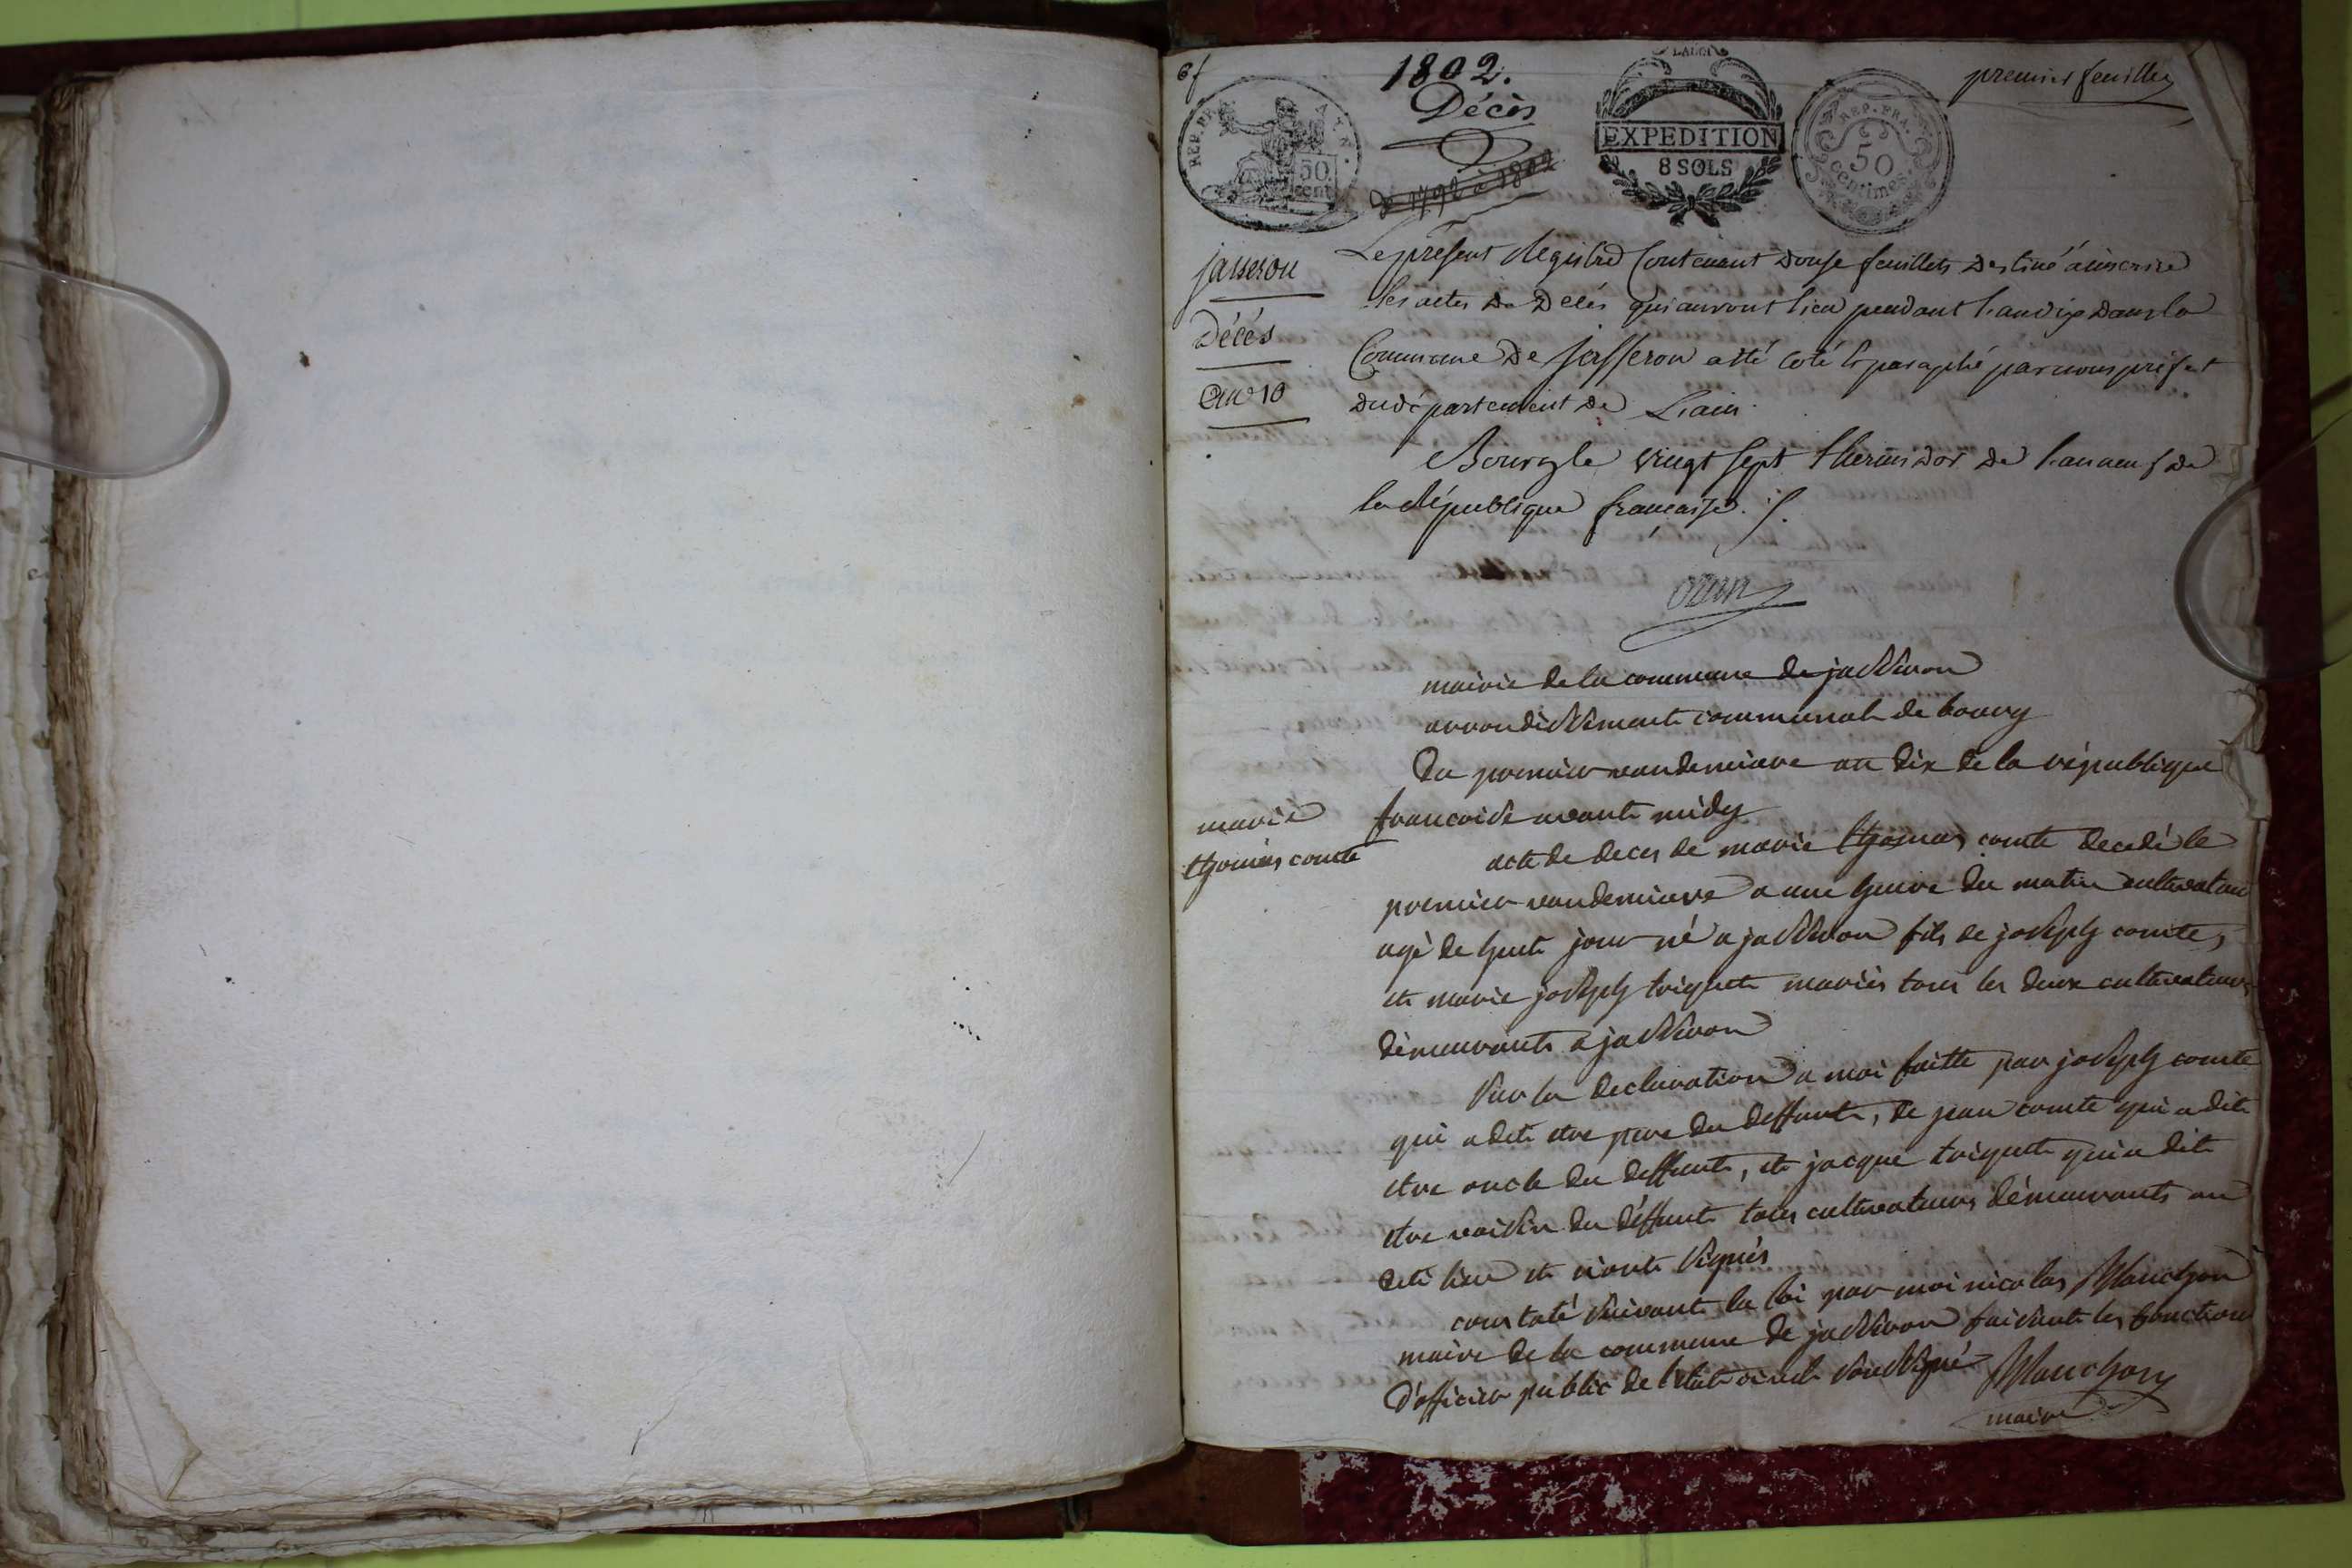 6f
1802.
Décès
de 1792 à 1802
premier feuillet
REP. FRA.
50
cent
LA LOI
EXPEDITION
8 SOLS
REP. FRA.
50
centimes.
jasseron
Décès
an 10
Le présent Registre Contenant douse feuillets destiné a inscrire
les actes de décés qui auront lieu pendant l'an dix dans la
Commune de Jasseron a été coté & paraphé par nous préfet
du département de L'ain.
Bourg le vingt sept thermidor de l'an neuf de
la République française ./.
ozun
mairie de la commune de jasseron
arrondissement communal de bourg
Du premier vandemiaire an dix de la république
francoise avant midy
marie
thomas comte
acte de deces de marie thomas comte decedé le
premier vandemiaire a une heure du matin cultivateur
agé de huit jour né a jasseron fils de joseph comte,
et marie joseph triquet mariés tous les deux cultivateurs
démeurants a jasseron
Sur la declaration a moi faitte par joseph comte
qui a dit etre pere du deffunt, de jean comte qui a dit
etre oncle du deffunt, et jacque triquet qui a dit
etre voisin du déffunt tous cultivateurs démeurants au
dit lieu et n'ont signés
constaté suivant la loi par moi nicolas Manchon
maire de la commune de jasseron faisant les fonction
d'officier public de l'état civil soussigné Manchon
maire